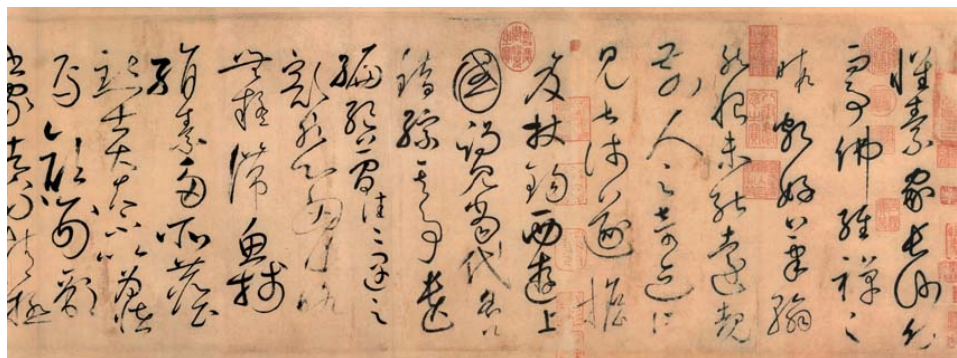 懷素家長沙幼
而事佛經禪之
暇頗好筆翰
然恨未能遠覩
前人之奇迹所
見甚淺遂擔
笈杖錫西遊上
國謁見當代名公
錯綜其事遺
編絕簡往往遇之
豁然心胸略
無疑滯魚牋
絹素多所塵點
士大夫不以為怪
焉顏刑部
書家者流精極